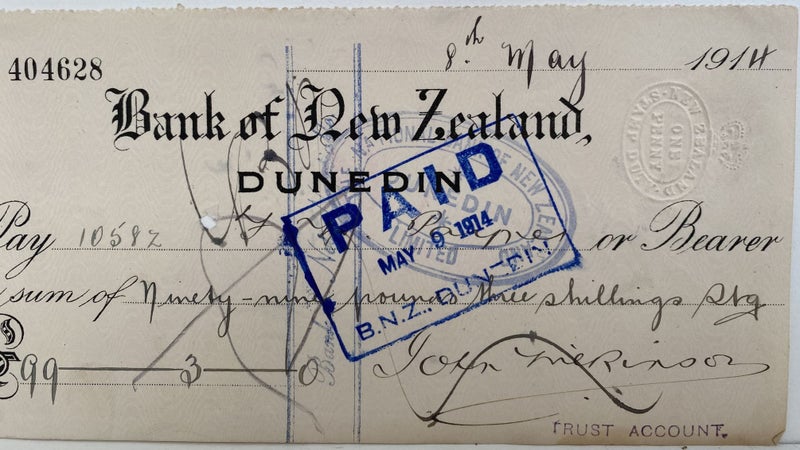 8th May 1914
404628
Bank of New Zealand,
DUNEDIN
STAMP DUTY NEW ZEALAND
ONE PENNY
THE NATIONAL BANK OF NEW ZEALAND
DUNEDIN
LIMITED
PAID
MAY 9 1914
B.N.Z., DUNEDIN
Pay 10582 or Bearer
sum of Ninety-nine pounds three shillings Stg
£99 — 3 — 0
John Wilkinson
TRUST ACCOUNT.